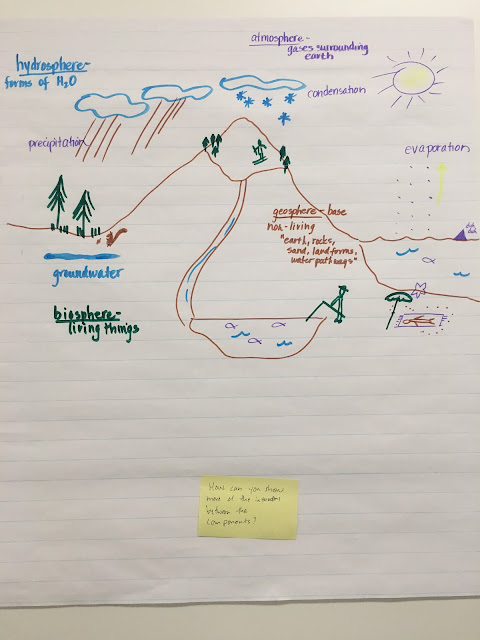 atmosphere-
gases surrounding
earth
hydrosphere-
forms of H₂O
condensation
precipitation
evaporation
geosphere- base
non-living
"earth, rocks,
sand, landforms,
water pathways"
groundwater
biosphere-
living things
How can you show
more of the
between the
components?